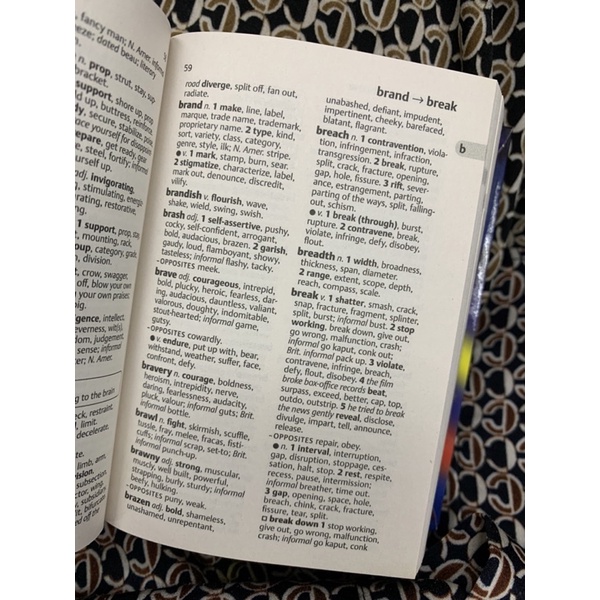 , fancy man; N. Amer. informal
eze; doted beau; literary
n. prop, strut, stay, sup-
bracket.
support, shore up, prop
ld up, buttress, reinforce
dy, secure, stabilize, pos
ace yourself for disappoin
epare, get ready, gear
e, steel, fortify; informal
urself up.
adj. invigorating,
stimulating, energiz
rating, restorative,
1 support, prop, stay
mounting, rack,
oup, category, grade
n, division.
t, crow, swagger,
off, blow your own
praises
big.
igence, intellect,
everness, wit(s),
dom, judgement,
sense; informal
N. Amer.
ing to the brain
eck, restraint,
limit.
decelerate.
limb, arm,
vision.
subsection,
ctor, wing,
bsidiary
59
brand → break
b
road diverge, split off, fan out,
radiate.
brand n. 1 make, line, label,
marque, trade name, trademark,
proprietary name. 2 type, kind,
sort, variety, class, category,
genre, style, ilk; N. Amer. stripe.
●v. 1 mark, stamp, burn, sear.
2 stigmatize, characterize, label,
mark out, denounce, discredit,
vilify.
brandish v. flourish, wave,
shake, wield, swing, swish.
brash adj. 1 self-assertive, pushy,
cocky, self-confident, arrogant,
bold, audacious, brazen. 2 garish,
gaudy, loud, flamboyant, showy,
tasteless; informal flashy, tacky.
-OPPOSITES meek.
brave adj. courageous, intrepid,
bold, plucky, heroic, fearless, dar-
ing, audacious, dauntless, valiant,
valorous, doughty, indomitable,
stout-hearted; informal game,
gutsy.
-OPPOSITES cowardly.
●v. endure, put up with, bear,
withstand, weather, suffer, face,
confront, defy.
bravery n. courage, boldness,
heroism, intrepidity, nerve,
daring, fearlessness, audacity,
pluck, valour; informal guts; Brit.
informal bottle.
brawl n. fight, skirmish, scuffle,
tussle, fray, melee, fracas, fisti-
cuffs; informal scrap, set-to; Brit.
informal punch-up.
brawny adj. strong, muscular,
muscly, well built, powerful,
strapping, burly, sturdy; informal
beefy, hulking.
-OPPOSITES puny, weak.
brazen adj. bold, shameless,
unashamed, unrepentant,
unabashed, defiant, impudent,
impertinent, cheeky, barefaced,
blatant, flagrant.
breach n. 1 contravention, viola-
tion, infringement, infraction,
transgression. 2 break, rupture,
split, crack, fracture, opening,
gap, hole, fissure. 3 rift, sever-
ance, estrangement, parting,
parting of the ways, split, falling-
out, schism.
●v. 1 break (through), burst,
rupture. 2 contravene, break,
violate, infringe, defy, disobey,
flout.
breadth n. 1 width, broadness,
thickness, span, diameter.
2 range, extent, scope, depth,
reach, compass, scale.
break v. 1 shatter, smash, crack,
snap, fracture, fragment, splinter,
split, burst; informal bust. 2 stop
working, break down, give out,
go wrong, malfunction, crash;
informal go kaput, conk out;
Brit. informal pack up. 3 violate,
contravene, infringe, breach,
defy, flout, disobey. 4 the film
broke box-office records beat,
surpass, exceed, better, cap, top,
outdo, outstrip. 5 he tried to break
the news gently reveal, disclose,
divulge, impart, tell, announce,
release.
-OPPOSITES repair, obey.
●n. 1 interval, interrup-
tion, gap, disruption, stoppage, ces-
sation, halt, stop. 2 rest, respite,
recess, pause, intermission;
informal breather, time out.
3 gap, opening, space, hole,
breach, chink, crack, fracture,
fissure, tear, split.
□ break down 1 stop working,
give out, go wrong, malfunction,
crash; informal go kaput, conk